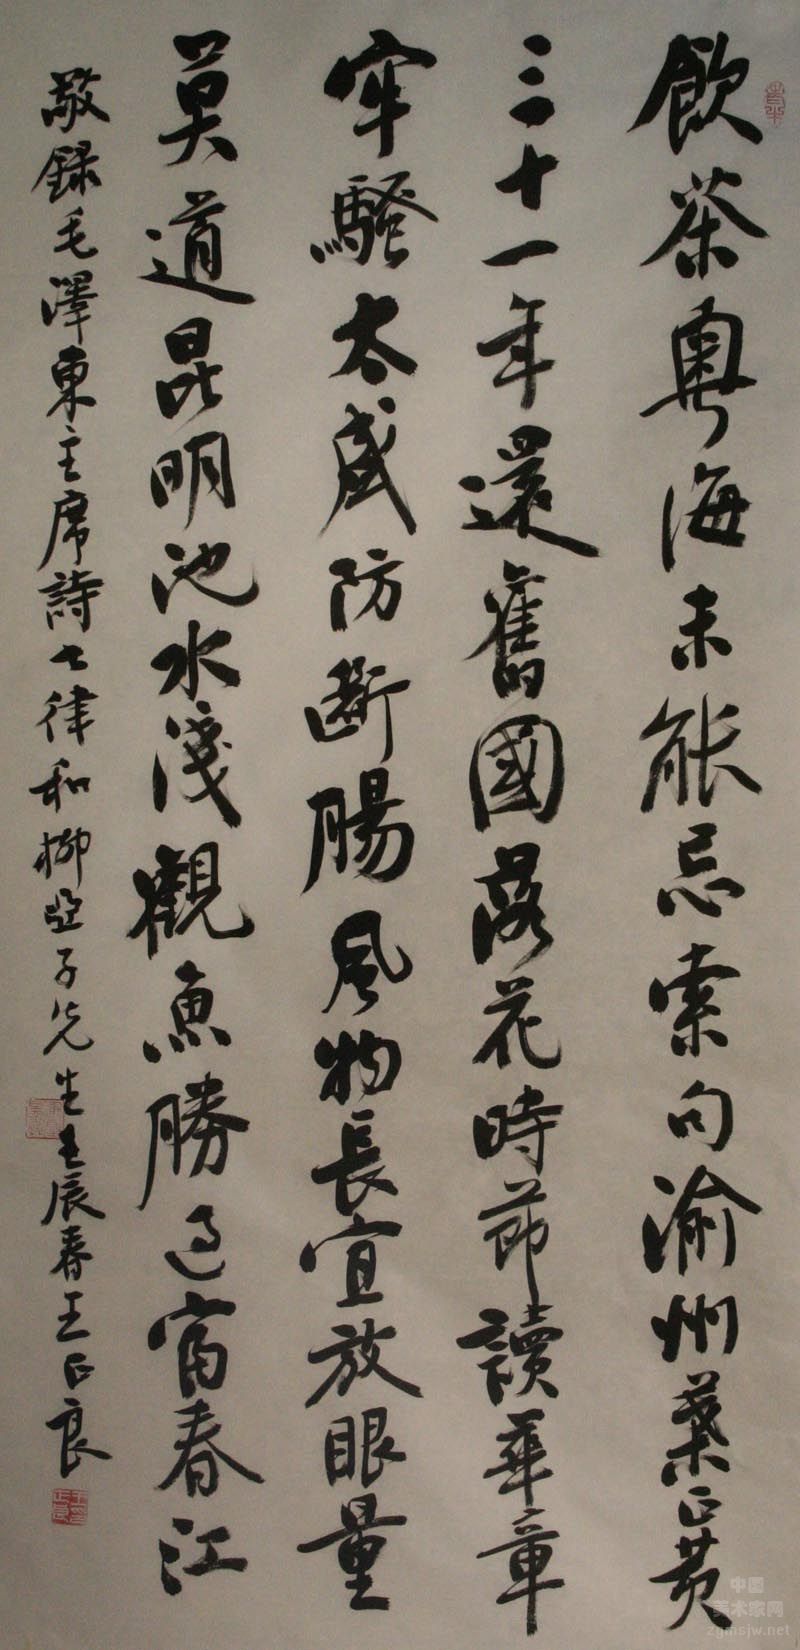 飲茶粵海未能忘索句渝州葉正黃
三十一年還舊國落花時節讀華章
牢騷太盛防斷腸風物長宜放眼量
莫道昆明池水淺觀魚勝過富春江
敬錄毛澤東主席詩七律和柳亞子先生壬辰春王正良
中国
美术家网
zgmsjw.net